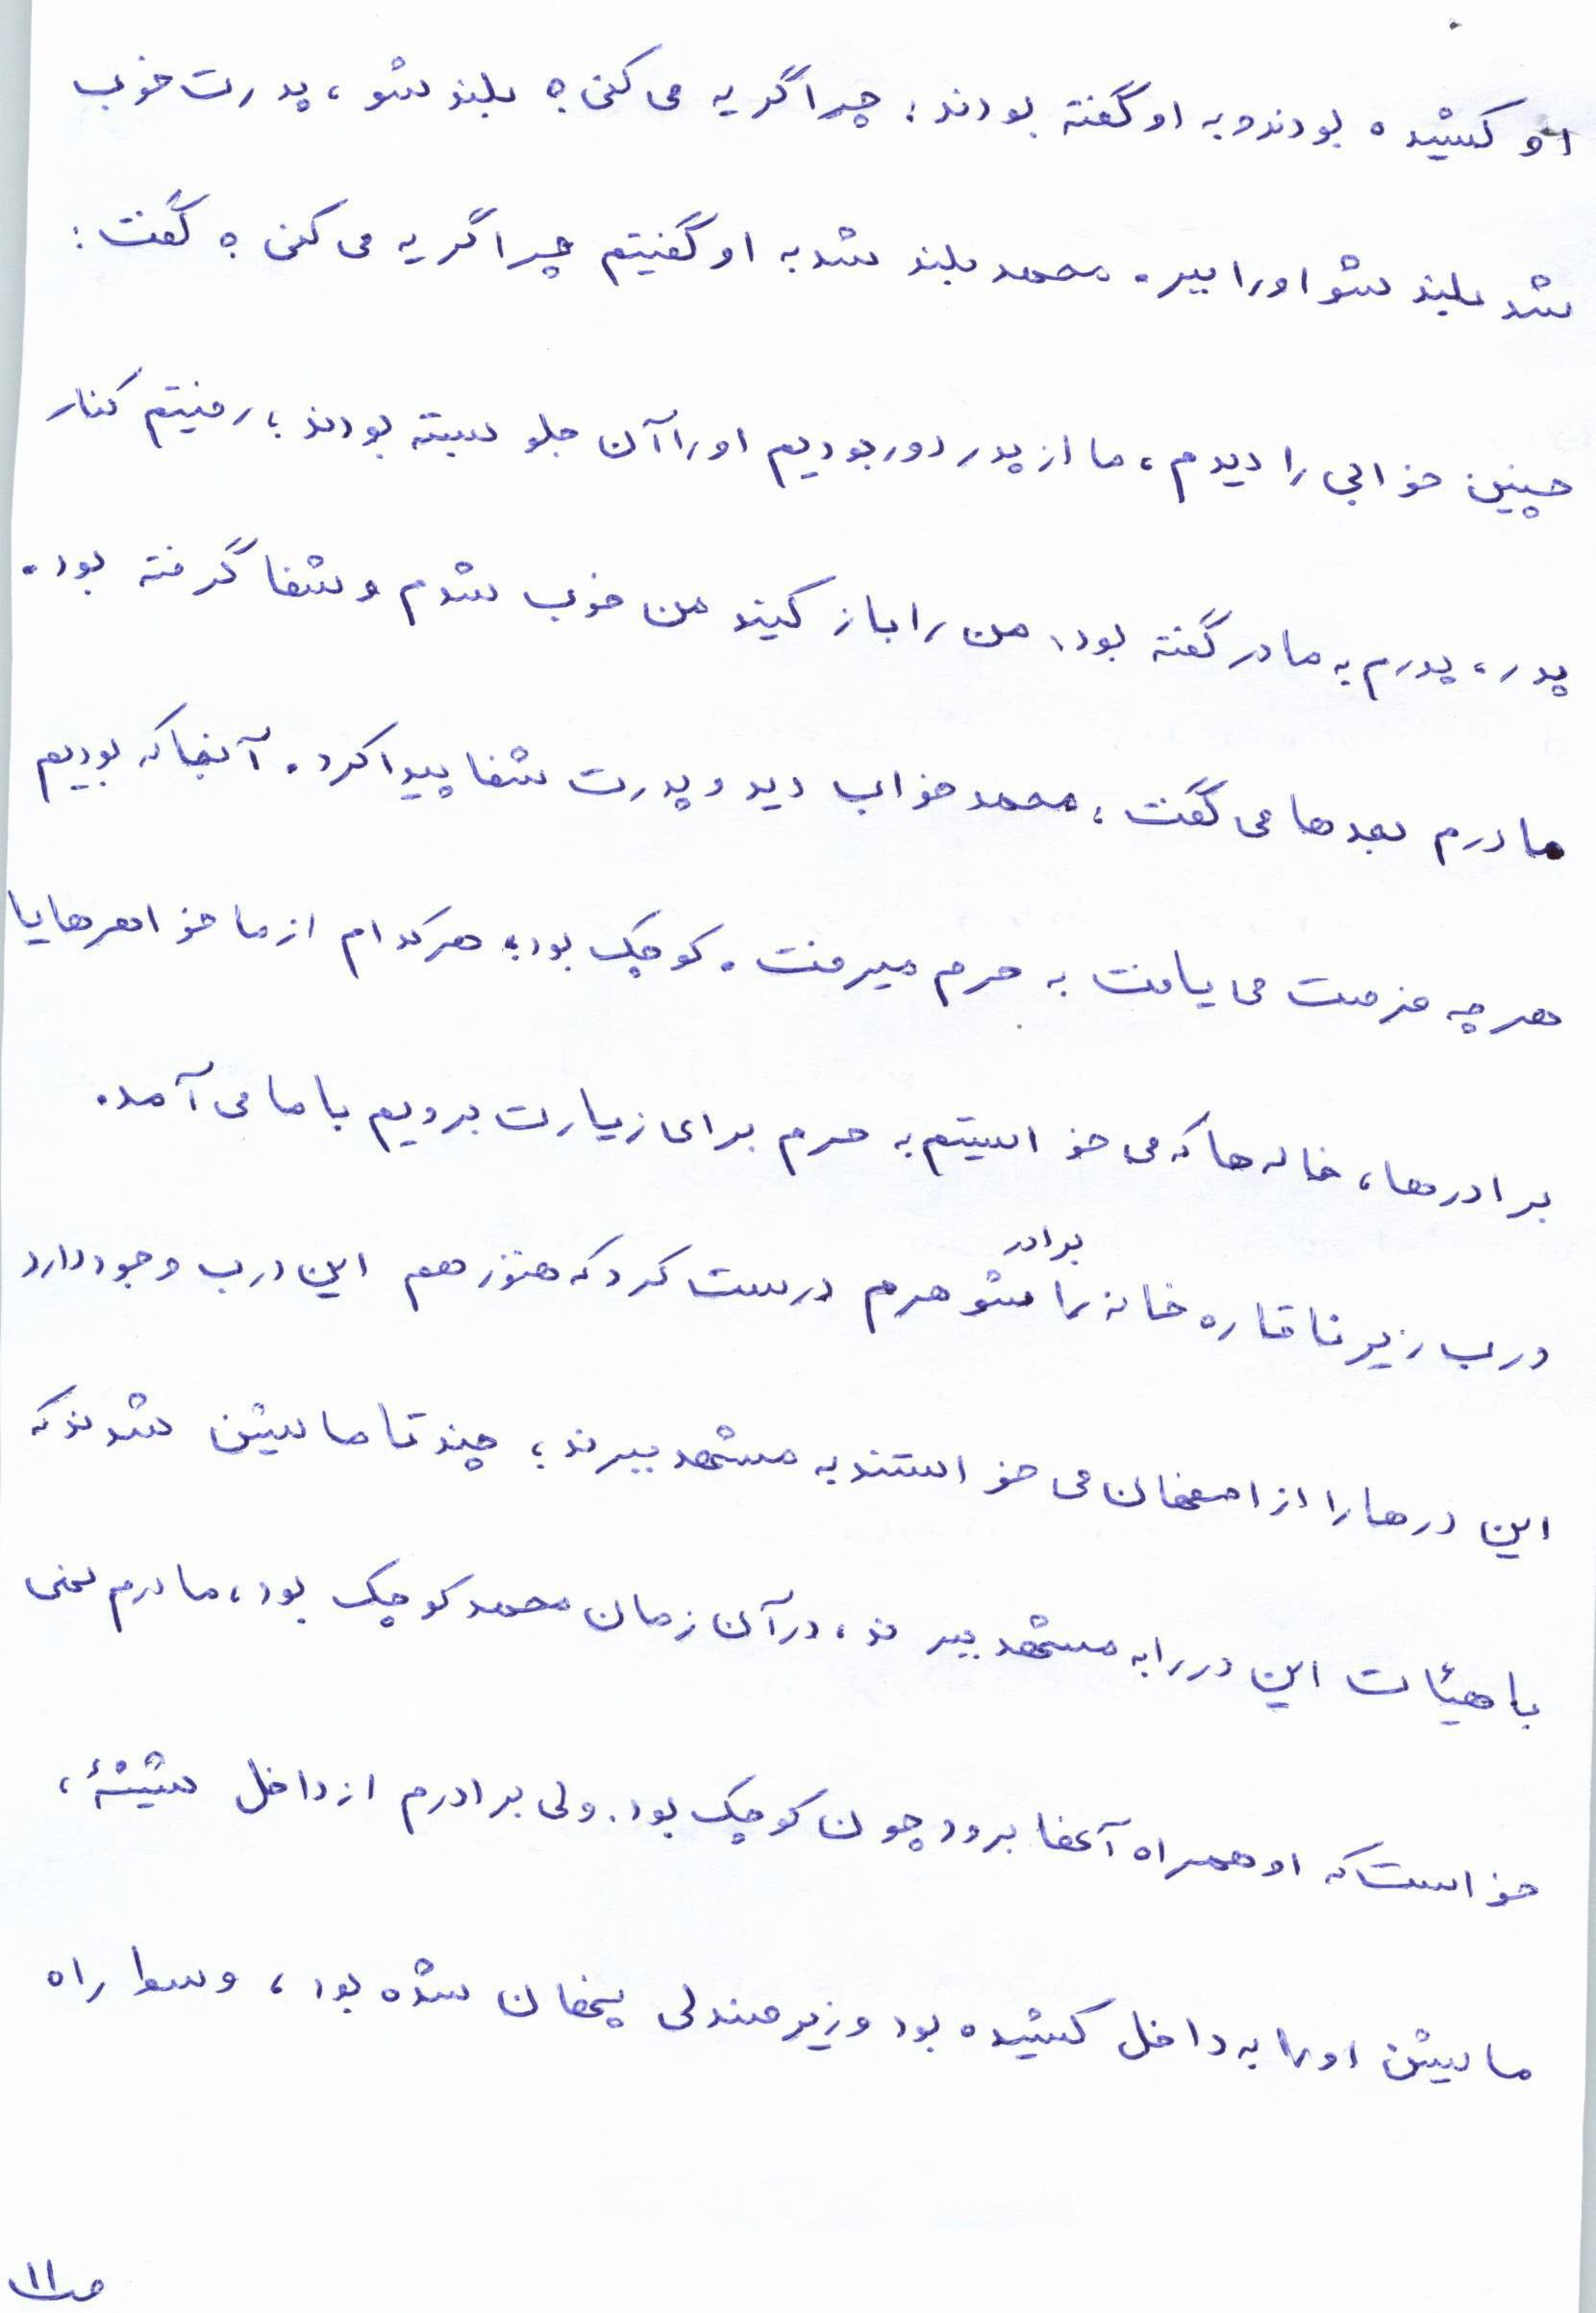 او کشیده بودند و به او گفته بودند: چرا گریه می کنی؟ بلند شو، پدرت خوب
شد بلند شو او را ببر. محمد بلند شد به او گفتیم چرا گریه می کنی؟ گفت:
چنین خوابی را دیدم، ما از پدر دور بودیم او را آن جلو بسته بودند؛ رفتیم کنار
پدر، پدرم به مادر گفته بود: من را باز کنید من خوب شدم و شفا گرفته بود.
مادرم بعدها می گفت: محمد خواب دید و پدرت شفا پیدا کرد. آنجا که بودیم
هر چه فرصت می یافت به حرم میرفت. کوچک بود؛ هر کدام از ما خواهرها یا
برادرها، خاله ها که می خواستیم به حرم برای زیارت برویم با ما می آمد.
برادر
درب زیر نا قاره خانه را شوهرم درست کرد که هنوز هم این درب وجود دارد
این درها را از اصفهان می خواستند به مشهد ببرند؛ چند تا ماشین شدند که
با هیئات این در را به مشهد ببرند، در آن زمان محمد کوچک بود، مادرم نمی
خواست که او همراه آنها برود چون کوچک بود. ولی برادرم از داخل شیشهٔ،
ماشین او را به داخل کشیده بود و زیر صندلی پنهان شده بود، وسط راه
ص ۱۱